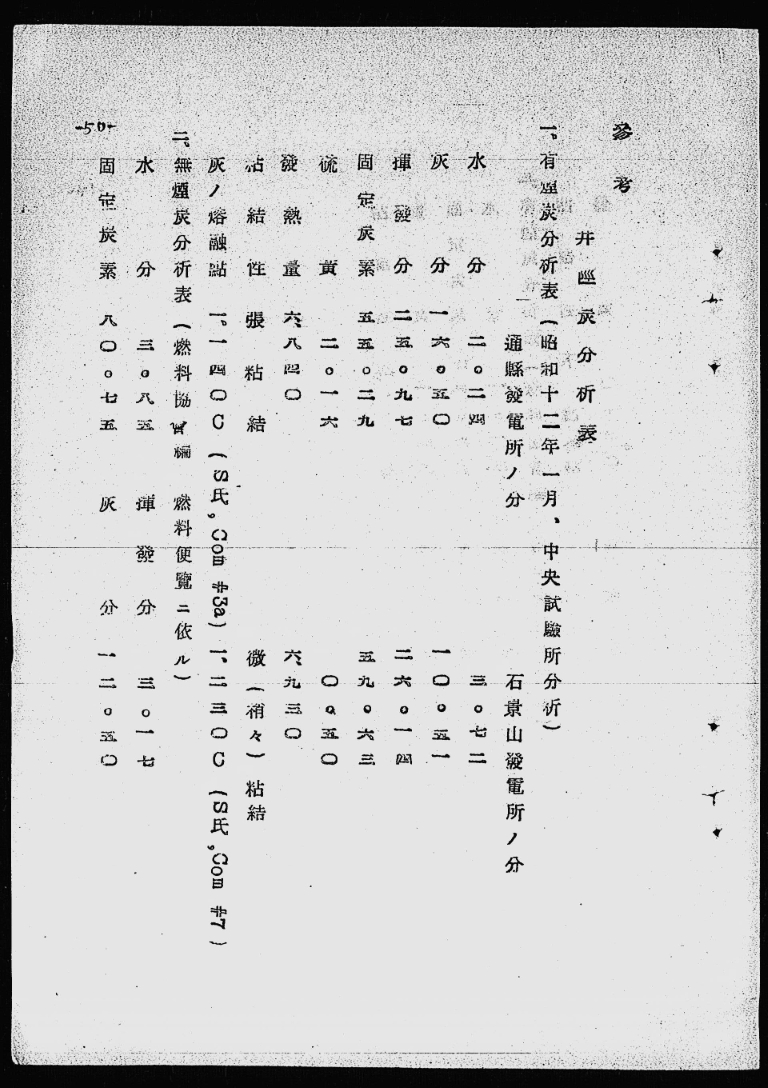 參考
井陘炭分析表
一、有煙炭分析表(昭和十二年一月、中央試驗所分析)
通縣發電所ノ分 石景山發電所ノ分
水分 二。二四 三。七二
灰分 一六。五〇 一〇。五一
揮發分 二五。九七 二六。一四
固定炭素 五五。二九 五九。六三
硫黄 二。一六 〇。五〇
發熱量 六、八四〇 六、九三〇
粘結性 張粘結 微(稍々)粘結
灰ノ熔融點 一。一四〇C(S氏,Com #3a) 一、二三〇C(S氏,Com #7)
二、無煙炭分析表(燃料協會編 燃料便覽ニ依ル)
水分 三。八五 揮發分 三。一七
固定炭素 八〇。七五 灰分 一二。五〇
-50-